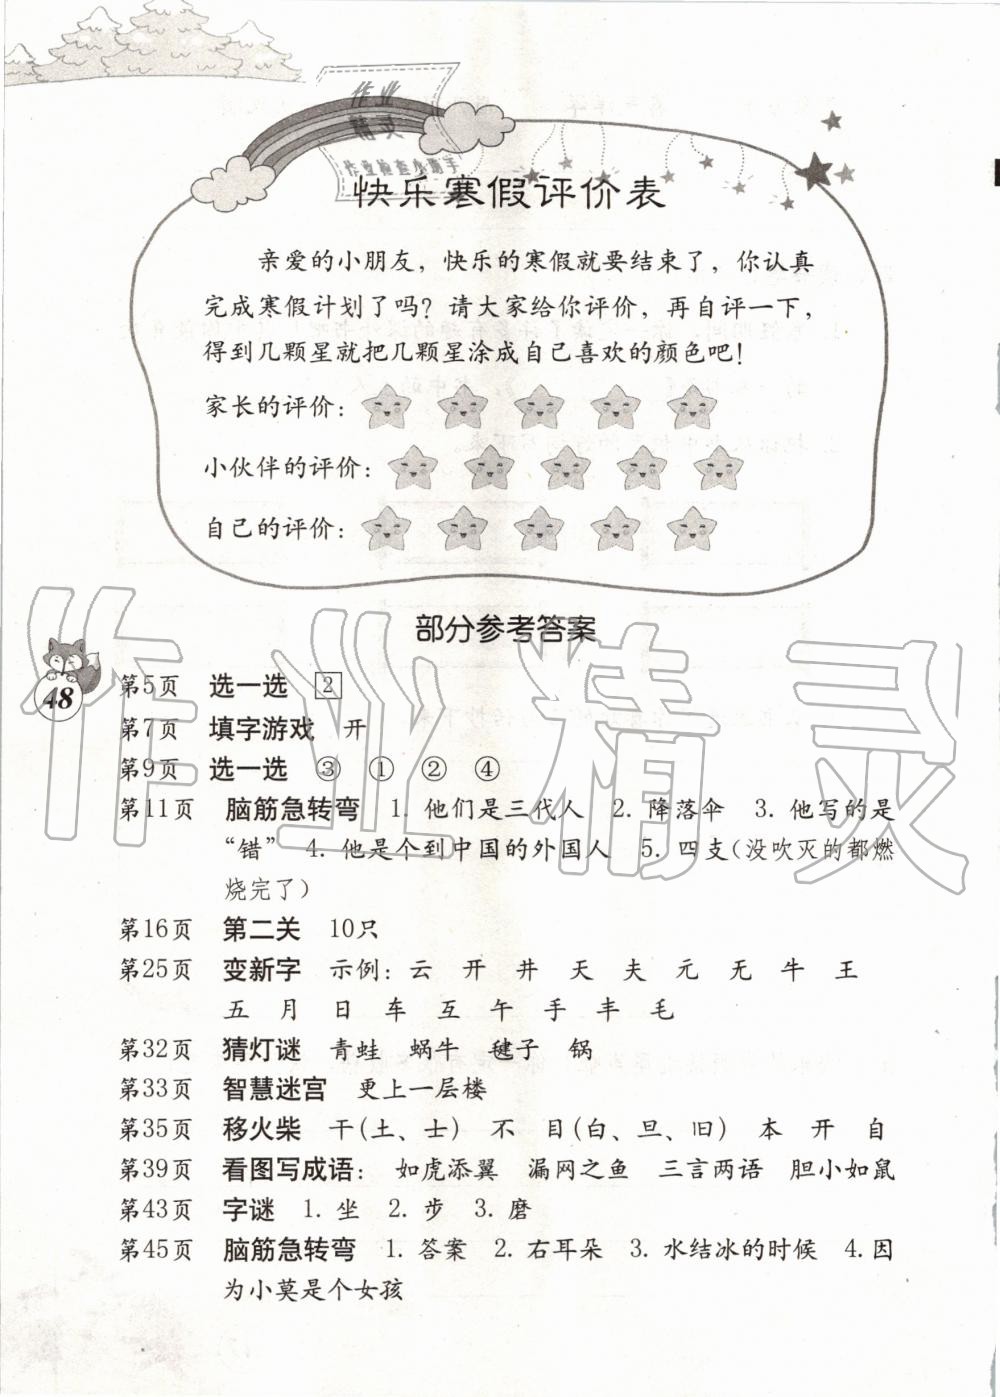 作业
精灵
作业检查小助手
快乐寒假评价表
亲爱的小朋友，快乐的寒假就要结束了，你认真
完成寒假计划了吗？请大家给你评价，再自评一下，
得到几颗星就把几颗星涂成自己喜欢的颜色吧！
家长的评价：
小伙伴的评价：
自己的评价：
部分参考答案
48
第5页 选一选 2
第7页 填字游戏 开
第9页 选一选 ③ ① ② ④
第11页 脑筋急转弯 1. 他们是三代人 2. 降落伞 3. 他写的是
“错” 4. 他是个到中国的外国人 5. 四支（没吹灭的都燃
烧完了）
第16页 第二关 10只
第25页 变新字 示例：云 开 井 天 夫 元 无 牛 王
五 月 日 车 互 午 手 丰 毛
第32页 猜灯谜 青蛙 蜗牛 毽子 锅
第33页 智慧迷宫 更上一层楼
第35页 移火柴 干（土、士） 不 目（白、旦、旧） 本 开 自
第39页 看图写成语： 如虎添翼 漏网之鱼 三言两语 胆小如鼠
第43页 字谜 1. 坐 2. 步 3. 磨
第45页 脑筋急转弯 1. 答案 2. 右耳朵 3. 水结冰的时候 4. 因
为小莫是个女孩
作业精灵